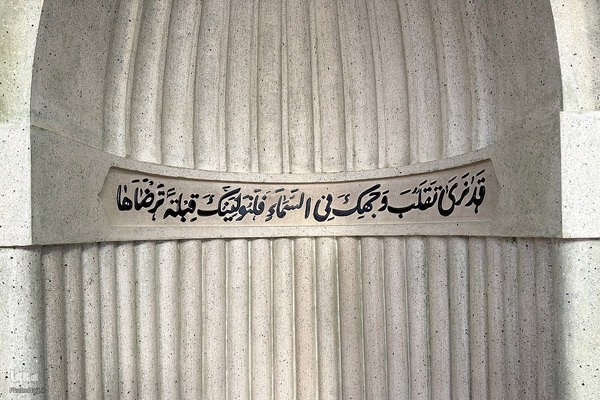 قَدْ نَرَىٰ تَقَلُّبَ وَجْهِكَ فِی السَّمَاءِ فَلَنُوَلِّیَنَّكَ قِبْلَةً تَرْضَاهَا